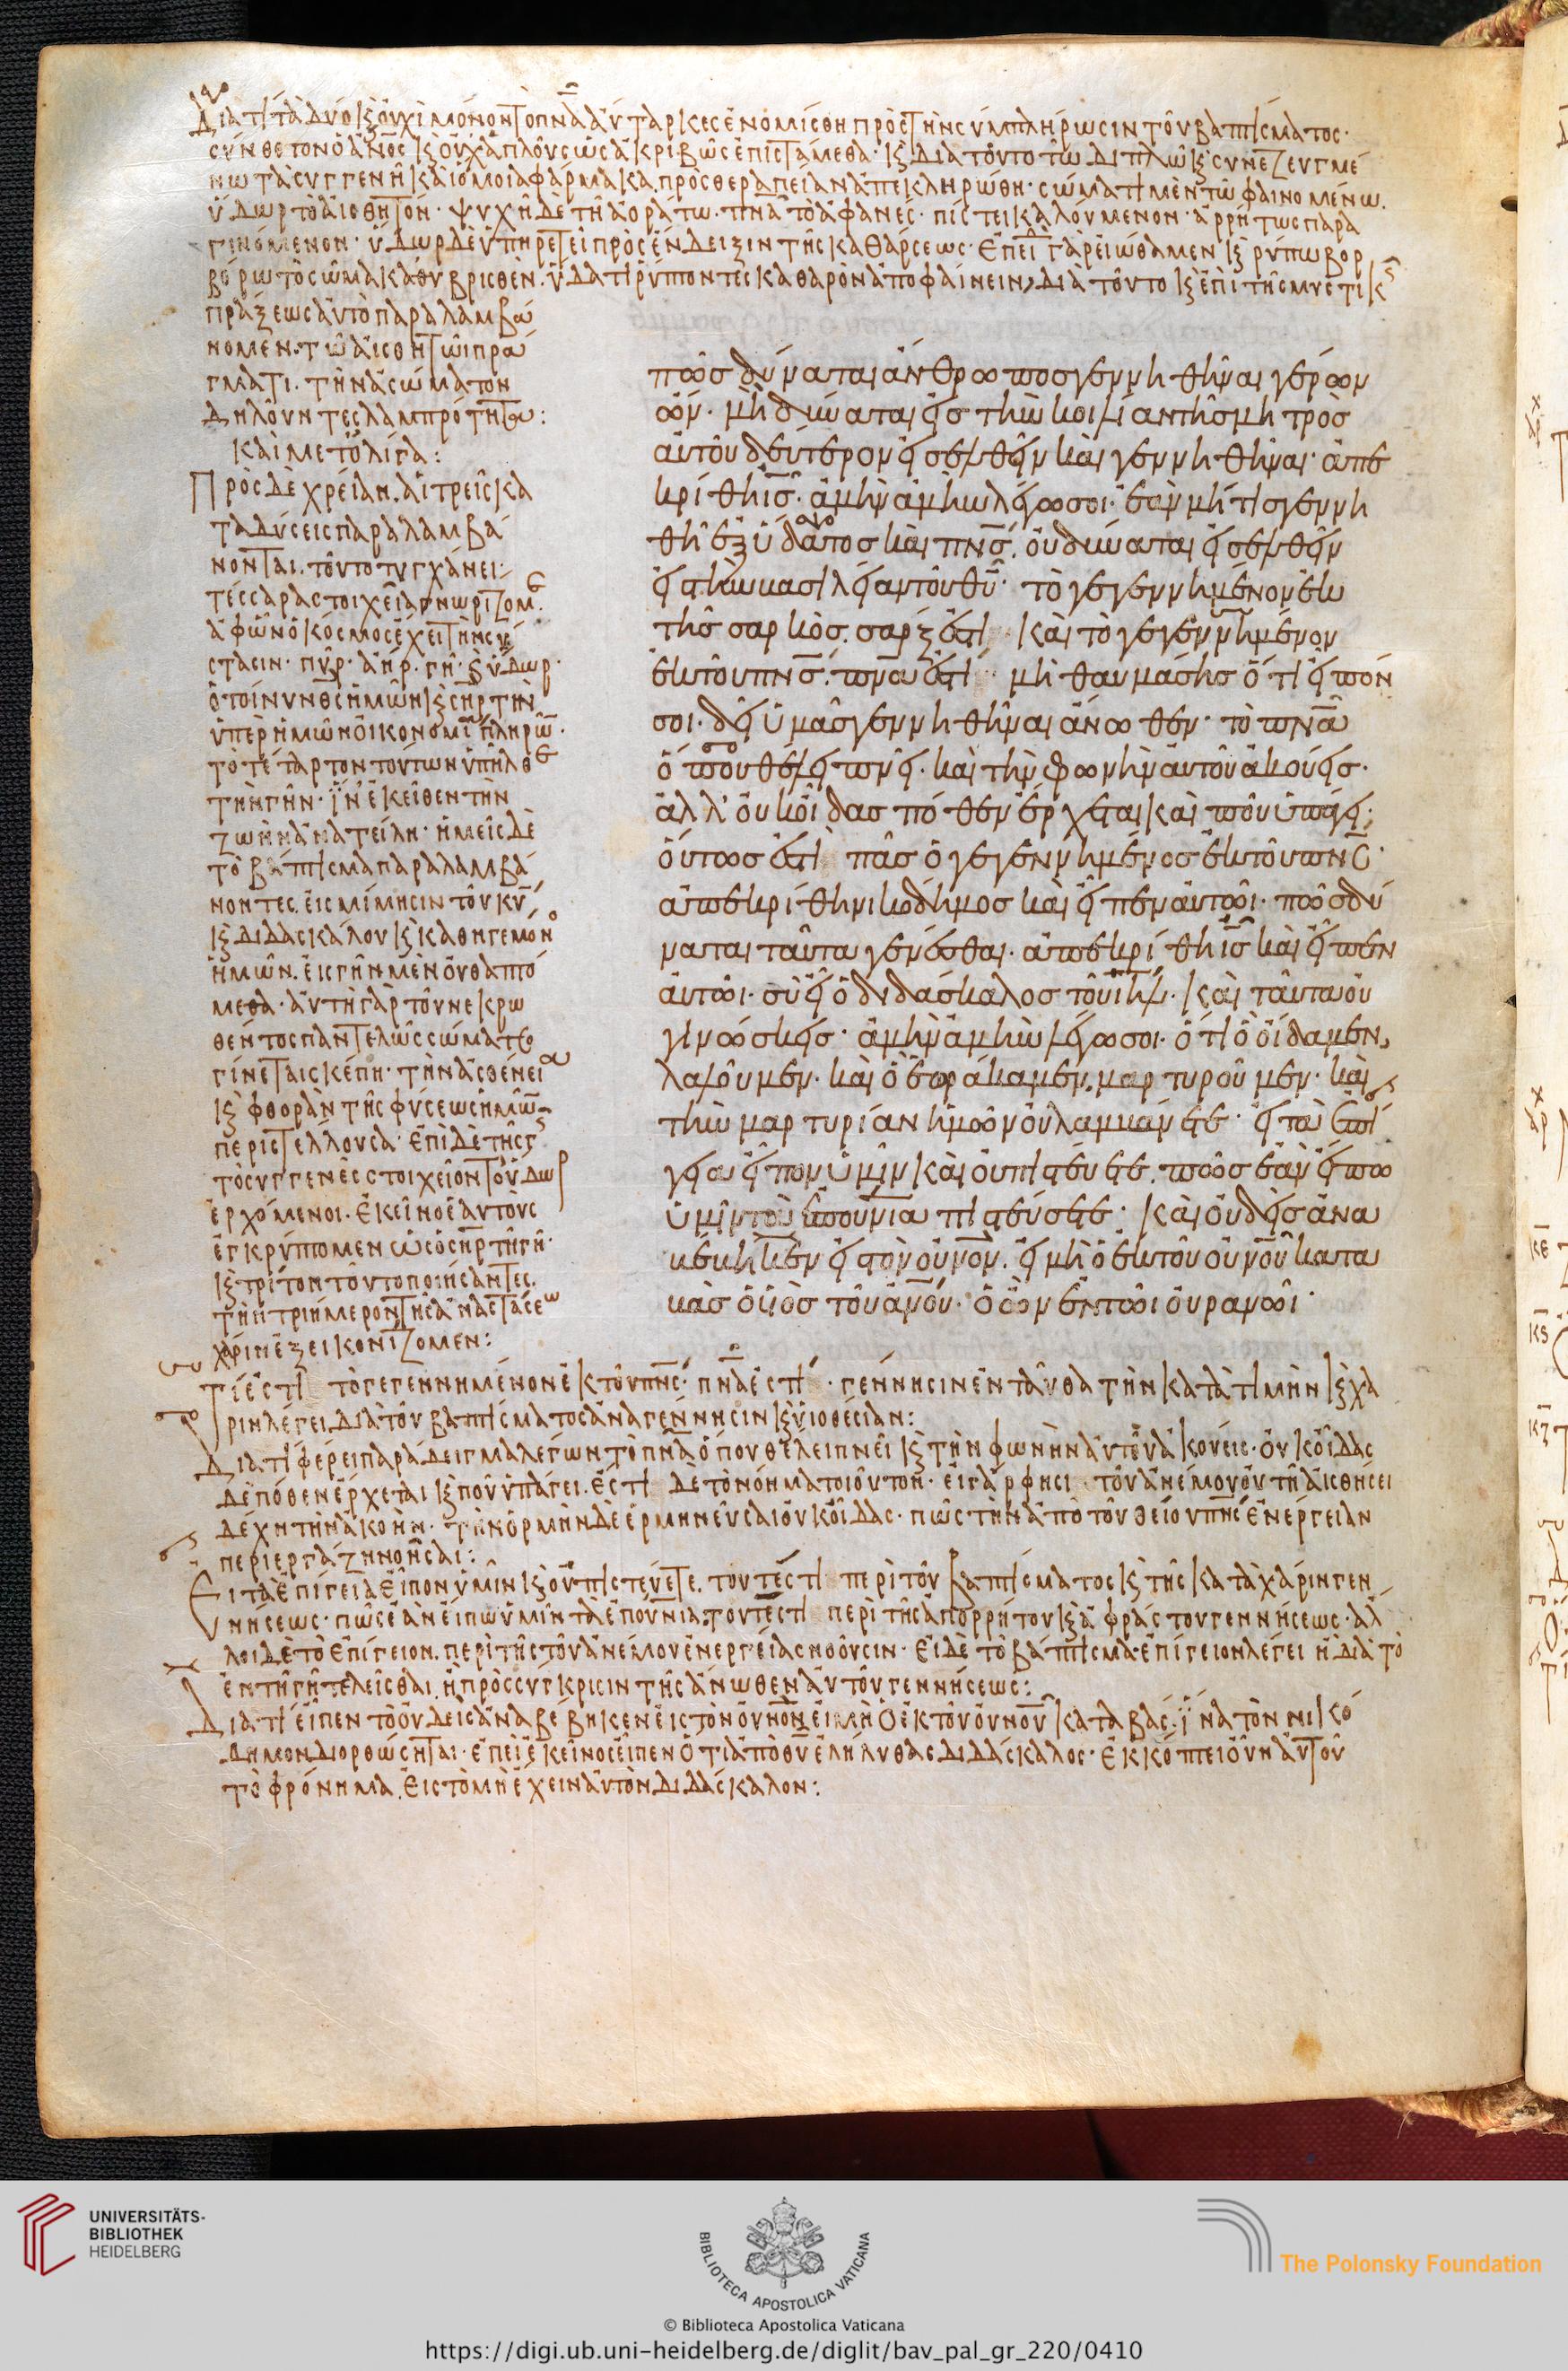 Διατί τὰ δύο κ(αὶ) οὐχὶ μόνον τὸ πν̅α̅ αὔταρκες ἐνομίσθη πρὸς τὴν συμπλήρωσιν τοῦ βαπτίσματος·
σύνθετον ὁ ἄν̅ο̅ς̅ κ(αὶ) οὐχ ἁπλοῦς ὡς ἀκριβῶς ἐπιστάμεθα· κ(αὶ) διὰ τοῦτο τῶ διπλῶ κ(αὶ) συνεζευγμέ
νω τὰ συγγενῆ καὶ ὅμοια φάρμακα πρὸς θεραπείαν ἀπεκληρώθη· σώματι μὲν τῶ φαινομένω.
ὕδωρ τὸ αἰσθητόν· ψυχῆ δὲ τῆ ἀοράτω. πν̅α̅ τὸ ἀφανές· πίστει καλούμενον· ἀρρήτως παρα
γινόμενον· ὕδωρ δὲ ὑπηρετεῖ πρὸς ἔνδειξιν τῆς καθάρσεως· ἐπεὶ γὰρ εἰώθαμεν κ(αὶ) ρύπω βορ
βόρω τὸ σῶμα καθυβρισθὲν. ὕδατι ρύπτοντες καθαρὸν ἀποφαίνειν, διὰ τοῦτο κ(αὶ) ἐπὶ τῆς μυστικ
πράξεως αὐτὸ παραλαμβά
νομεν. τῶ αἰσθητῶι πρά
γματι. τὴν ἀσώματον
δηλοῦντες λαμπρότητα:
Καὶ μετ' ὀλίγα:
Πρὸς δὲ χρείαν. αἱ τρεῖς κα
ταδύσεις παραλαμβά
νονται. τοῦτο τυγχάνει·
τέσσαρα στοιχεῖα γνωρίζομε
ἀφ' ὧν ὁ κόσμος ἔχει τὴν σύ
στασιν· πῦρ· ἀὴρ· γῆ· κ(αὶ) ὕδωρ·
ὁ τοίνυν θ̅ς̅ ἡμῶν κ(αὶ) σ̅η̅ρ̅ τὴν
ὑπὲρ ἡμῶν οἰκονομί πληρῶ·
τὸ τέταρτον τούτων ὑπῆλθε
τὴν γῆν· ἵν' ἐκεῖθεν τὴν
ζωὴν ἀνατείλη· ἡμεῖς δὲ
τὸ βάπτισμα παραλαμβά
νοντες. εἰς μίμησιν τοῦ κ̅υ̅
κ(αὶ) διδασκάλου κ(αὶ) καθηγεμόνο
ἡμῶν. εἰς γῆν μὲν οὐ θαπτό
μεθα· αὕτη γὰρ τοῦ νεκρω
θέντος παντελῶς σώματο
γίνεται σκέπη· τὴν ἀσθένεια
κ(αὶ) φθορὰν τῆς φύσεως ἡμῶ
περιστέλλουσα· ἐπὶ δὲ τῆς γ
τὸ συγγενὲς στοιχεῖον τὸ ὕδωρ
ἐρχόμενοι. ἐκείνο ἑαυτοὺς
ἐγκρύπτομεν ὡς ὁ σ̅η̅ρ̅ τῆ γῆ·
κ(αὶ) τρίτον τοῦτο ποιήσαντες.
τὴν τριήμερον τῆς ἀναστάσεω
χάριν ἐξεικονίζομεν:
πῶσ δύναται ἄνθρωποσ γεννηθῆναι γέρων
ὤν· μὴ δύναται εἰσ τὴν κοιλίαν τῆσ μητρὸσ
αὐτοῦ δεύτερον εἰσελθεῖν καὶ γεννηθῆναι· ἀπε
κρίθη ι̅σ̅· ἀμὴν ἀμὴν λέγω σοι· ἐὰν μή τισ γεννη
θῆ ἐξ ὕδατοσ καὶ π̅ν̅σ̅. οὐ δύναται εἰσελθεῖν
εἰσ τὴν βασιλείαν τοῦ θ̅υ̅· τὸ γεγεννημένον ἐκ
τῆσ σαρκὸσ. σάρξ ἐστι· Καὶ τὸ γεγεννημένον
ἐκ τοῦ π̅ν̅σ̅. π̅ν̅α̅ ἐστι· μὴ θαυμάσησ ὅτι εἶπόν
σοι. δεῖ ὑμᾶσ γεννηθῆναι ἄνωθεν· τὸ π̅ν̅α̅
ὅπου θέλει πνεῖ. καὶ τὴν φωνὴν αὐτοῦ ἀκούεισ·
ἀλλ' οὐκ οἶδασ πόθεν ἔρχεται καὶ ποῦ ὑπάγει·
οὕτωσ ἐστὶ πᾶσ ὁ γεγεννημένοσ ἐκ τοῦ π̅ν̅ς̅·
ἀπεκρίθη νικόδημοσ καὶ εἶπεν αὐτῶι· πῶσ δύ
ναται ταῦτα γενέσθαι. ἀπεκρίθη ι̅σ̅ καὶ εἶπεν
αὐτῶι· σὺ εἶ ὁ διδάσκαλοσ τοῦ ι̅η̅λ̅· Καὶ ταῦτα οὐ
γινώσκεισ· ἀμὴν ἀμὴν λέγω σοι. ὅτι ὃ οἴδαμεν,
λαλοῦμεν· καὶ ὃ ἑωράκαμεν, μαρτυροῦμεν· καὶ
τὴν μαρτυρίαν ἡμῶν οὐ λαμβάνετε· εἰ τὰ ἐπί
γεια εἶπον ὑμῖν καὶ οὐ πιστεύετε. πῶσ ἐὰν εἴπω
ὑμῖν τὰ ἐπουνια πιστεύσετε· Καὶ οὐδεὶσ ἀνα
βέβηκεν εἰσ τὸν ο̅υ̅ν̅ο̅ν̅. εἰ μὴ ὁ ἐκ τοῦ ο̅υ̅ν̅ο̅υ̅ κατα
βὰσ ὁ υἱὸσ τοῦ α̅ν̅ο̅υ̅· ὁ ὢν ἐν τῶι οὐρανῶι·
Τί ἐστι τὸ γεγεννημένον ἐκ τοῦ π̅ν̅ς̅· π̅ν̅α̅ ἐστί· γέννησιν ἐνταῦθα τὴν κατὰ τιμὴν κ(αὶ) χά
ριν λέγει. διὰ τοῦ βαπτίσματος ἀναγέννησιν κ(αὶ) υἱοθεσίαν:
Διατί φέρει παράδειγμα λέγων τὸ π̅ν̅α̅ ὅπου θέλει πνεῖ κ(αὶ) τὴν φωνὴν αὐτοῦ ἀκούεις· οὐκ οἶδας
δὲ πόθεν ἔρχεται κ(αὶ) ποῦ ὑπάγει. ἔστι δὲ τὸ νόημα τοιοῦτον· εἰ γάρ φησι τοῦ ἀνέμου οὐ τῆ αἰσθήσει
δέχη τὴν ἀκοὴν· τὴν ὁρμὴν δὲ ἑρμηνεῦσαι οὐκ οἶδας· πῶς τὴν ἀπὸ τοῦ θείου π̅ν̅ς̅ ἐνέργειαν
περιεργάζη νοῆσαι:
Εἰ τὰ ἐπίγεια εἶπον ὑμῖν κ(αὶ) οὐ πιστεύετε. τουτέστι περὶ τοῦ βαπτίσματος κ(αὶ) τῆς κατὰ χάριν γεν
νήσεως· πῶς ἐὰν εἴπω ὑμῖν τὰ ἐπουνια· τουτέστι περὶ τῆς ἀπορρήτου κ(αὶ) ἀφράστου γεννήσεως· ἀλ
λοι δὲ τὸ ἐπίγειον. περὶ τῆς τοῦ ἀνέμου ἐνεργείας νοοῦσιν· εἰ δὲ τὸ βάπτισμα ἐπίγειον λέγει ἢ διὰ τὸ
ἐν τῆ γῆ τελεῖσθαι. ἢ πρὸς σύγκρισιν τῆς ἄνωθεν αὐτοῦ γεννήσεως:
Διατί εἶπεν τὸ οὐδεὶς ἀναβέβηκεν εἰς τὸν ο̅υ̅ν̅ο̅ν̅ εἰ μὴ ὁ ἐκ τοῦ ο̅υ̅ν̅ο̅υ̅ καταβάς. ἵνα τὸν νικό
δημον διορθώσηται· ἐπεὶ ἐκεῖνος εἶπεν ὅτι ἀπὸ θ̅υ̅ ἐλήλυθας διδάσκαλος· ἐκκόπτει οὖν αὐτοῦ
τὸ φρόνημα. εἰς τὸ μὴ ἔχειν αὐτὸν διδάσκαλον:
UNIVERSITÄTS-
BIBLIOTHEK
HEIDELBERG
BIBLIOTECA APOSTOLICA VATICANA
The Polonsky Foundation
© Biblioteca Apostolica Vaticana
https://digi.ub.uni-heidelberg.de/diglit/bav_pal_gr_220/0410